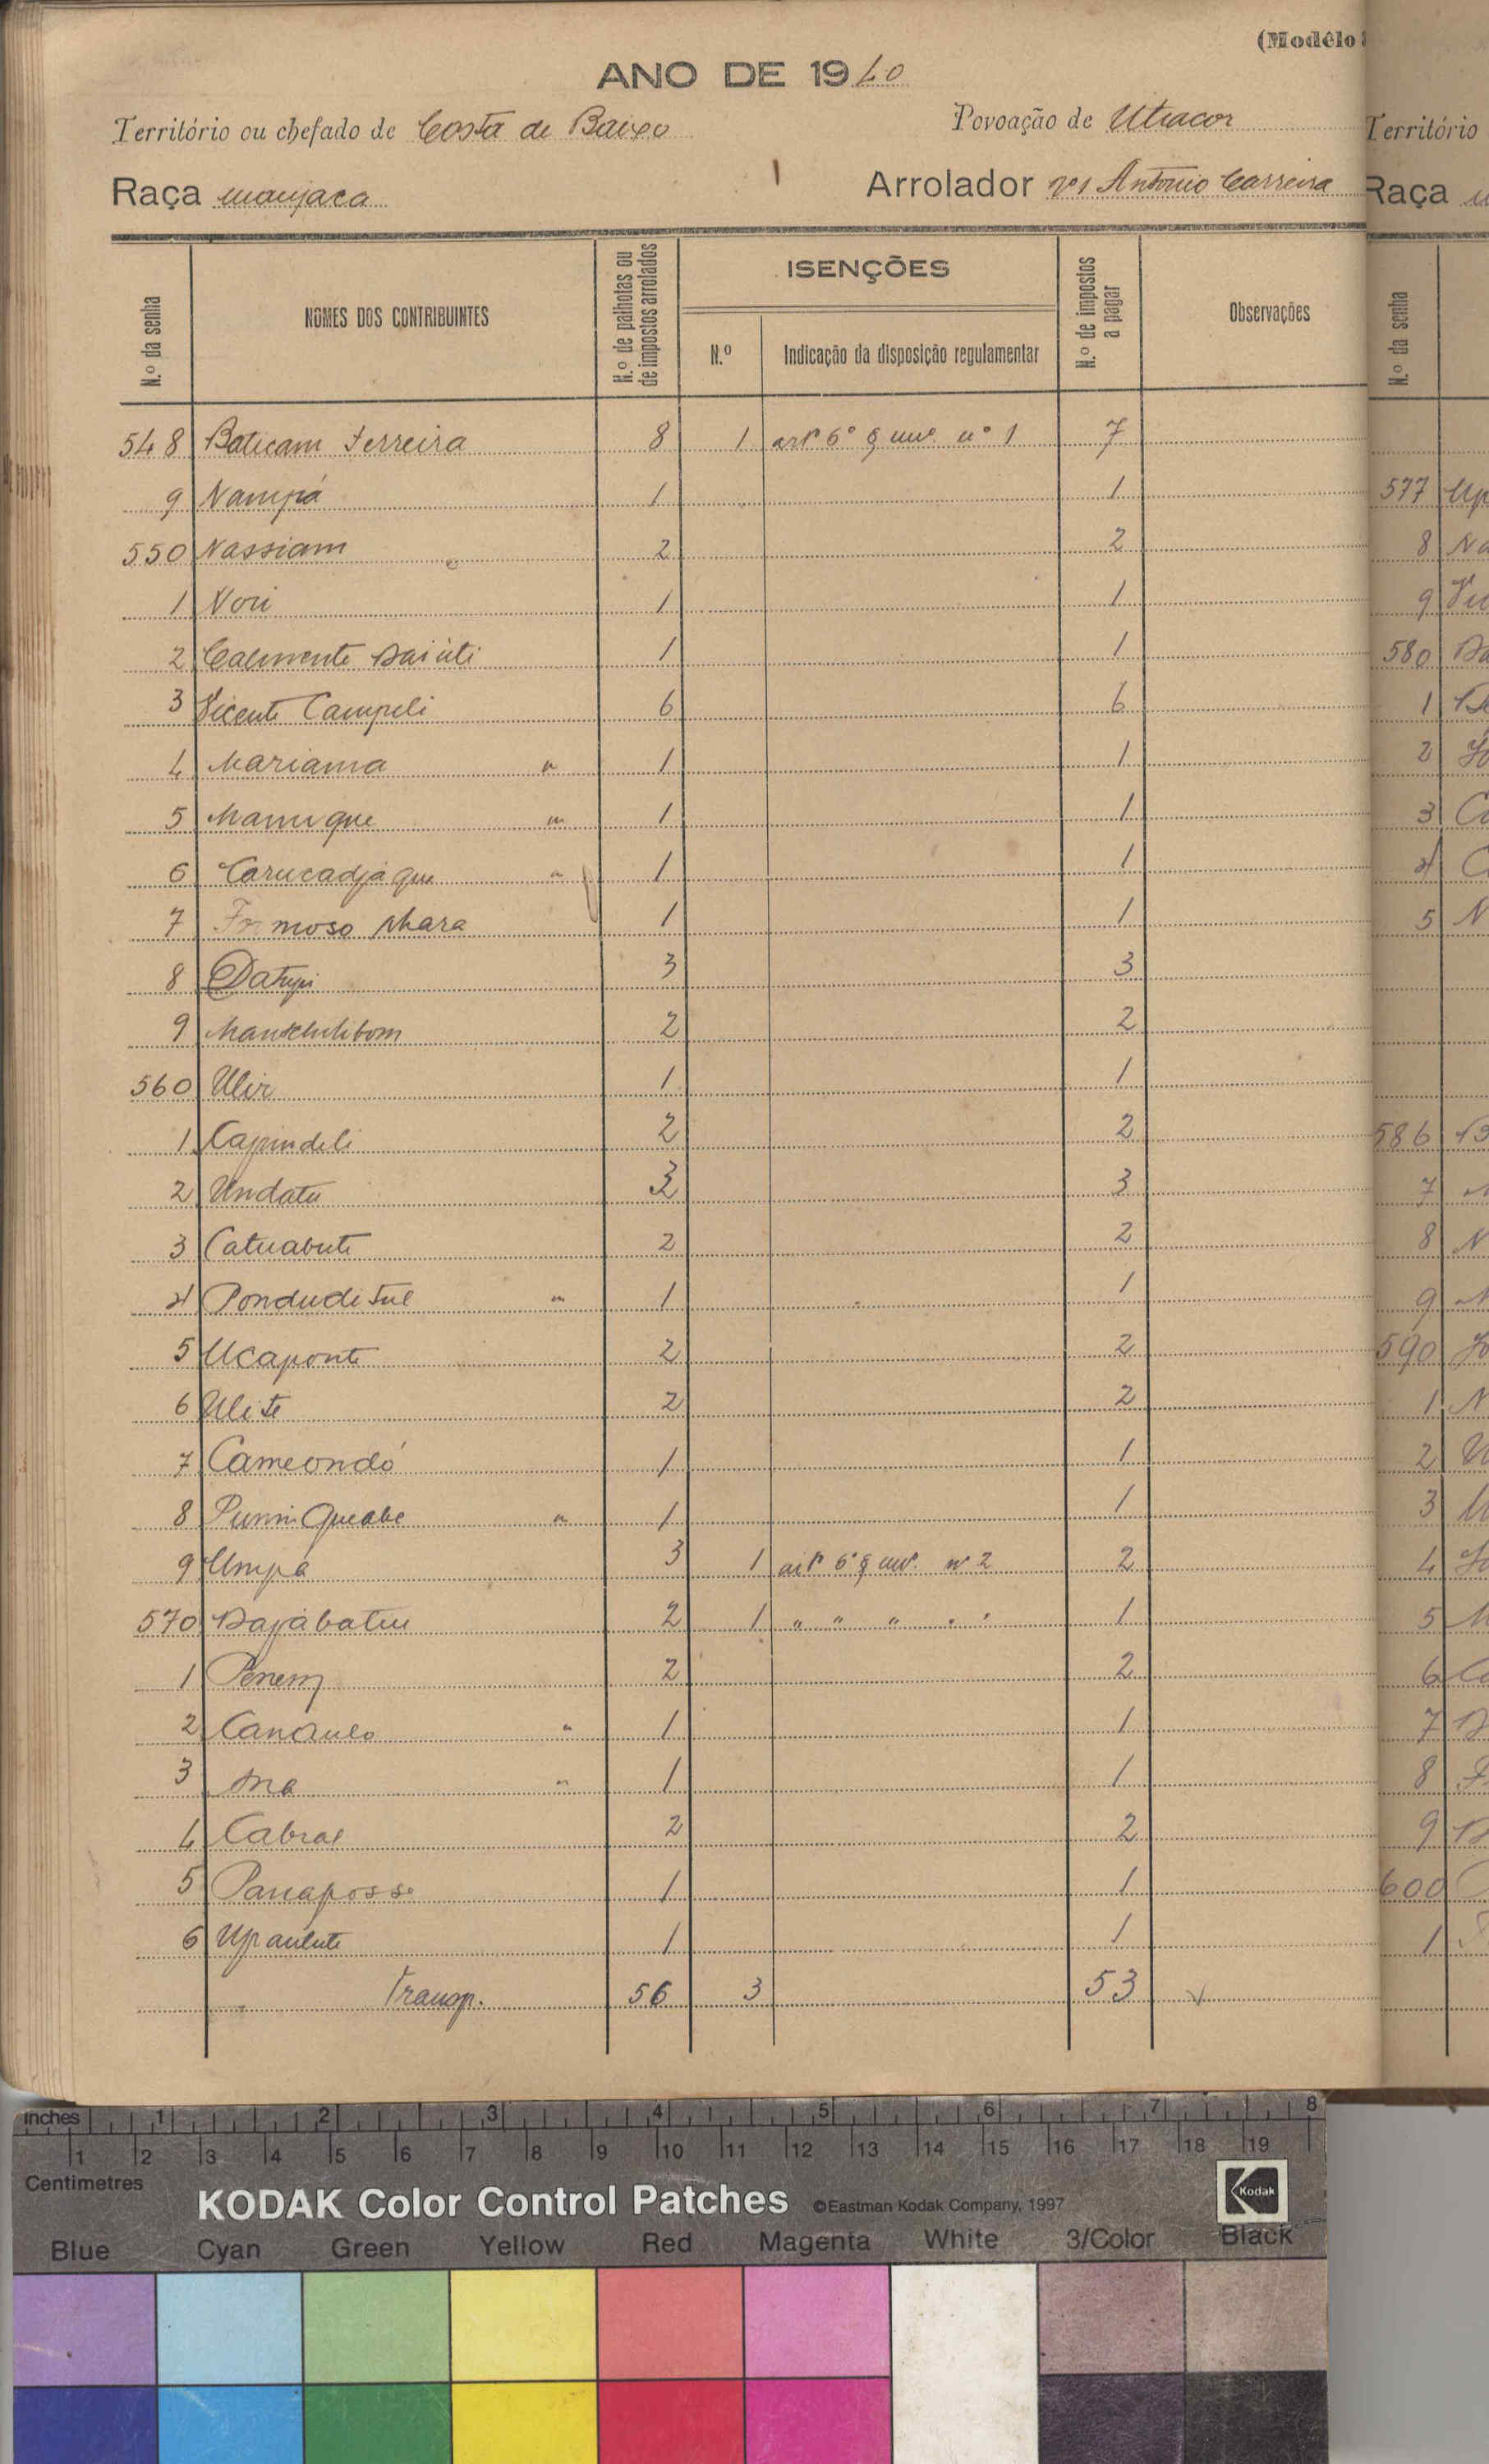 (Modêlo
ANO DE 1940
Território ou chefado de Costa de Baixo
Povoação de Utiacor
Raça manjaca
1
Arrolador nº1 António Carreira
N.º da senha
NOMES DOS CONTRIBUINTES
N.º de palhotas ou de impostos arrolados
ISENÇÕES
N.º
Indicação da disposição regulamentar
N.º de impostos a pagar
Observações
548 Baticam Ferreira 8 1 artº 6º § unº nº 1 7
9 Nampá 1 1
550 Nassiam 2 2
1 Nori 1 1
2 1 1
3 Vicente Campeli 6 6
4 Mariama " 1 1
5 Manuque " 1 1
6 Carucadjaque " 1 1
7 Formoso Nhara 1 1
8 Datupi 3 3
9 2 2
560 Ulir 1 1
1 Capindeli 2 2
2 Undatu 3 3
3 Catuabuti 2 2
4 " 1 1
5 Ucaponti 2 2
6 Ulite 2 2
7 Cameondó 1 1
8 " 1 1
9 Umpá 3 1 artº 6º § unº nº 2 2
570 Bajabatu 2 1 " " " " " 1
1 Penem 2 2
2 " 1 1
3 Ana " 1 1
4 Cabral 2 2
5 Panaposse 1 1
6 1 1
Transp. 56 3 53
Território
Raça
N.º da senha
577 Up
8 Na
9
580 Ba
1
2
3 Ca
4 C
5 N
586 B
7
8 N
9
590
1 N
2 U
3
4
5
6 Ca
7
8
9
600
1
inches 1 2 3 4 5 6 7 8
1 2 3 4 5 6 7 8 9 10 11 12 13 14 15 16 17 18 19
Centimetres
KODAK Color Control Patches ©Eastman Kodak Company, 1997 Kodak
Blue Cyan Green Yellow Red Magenta White 3/Color Black